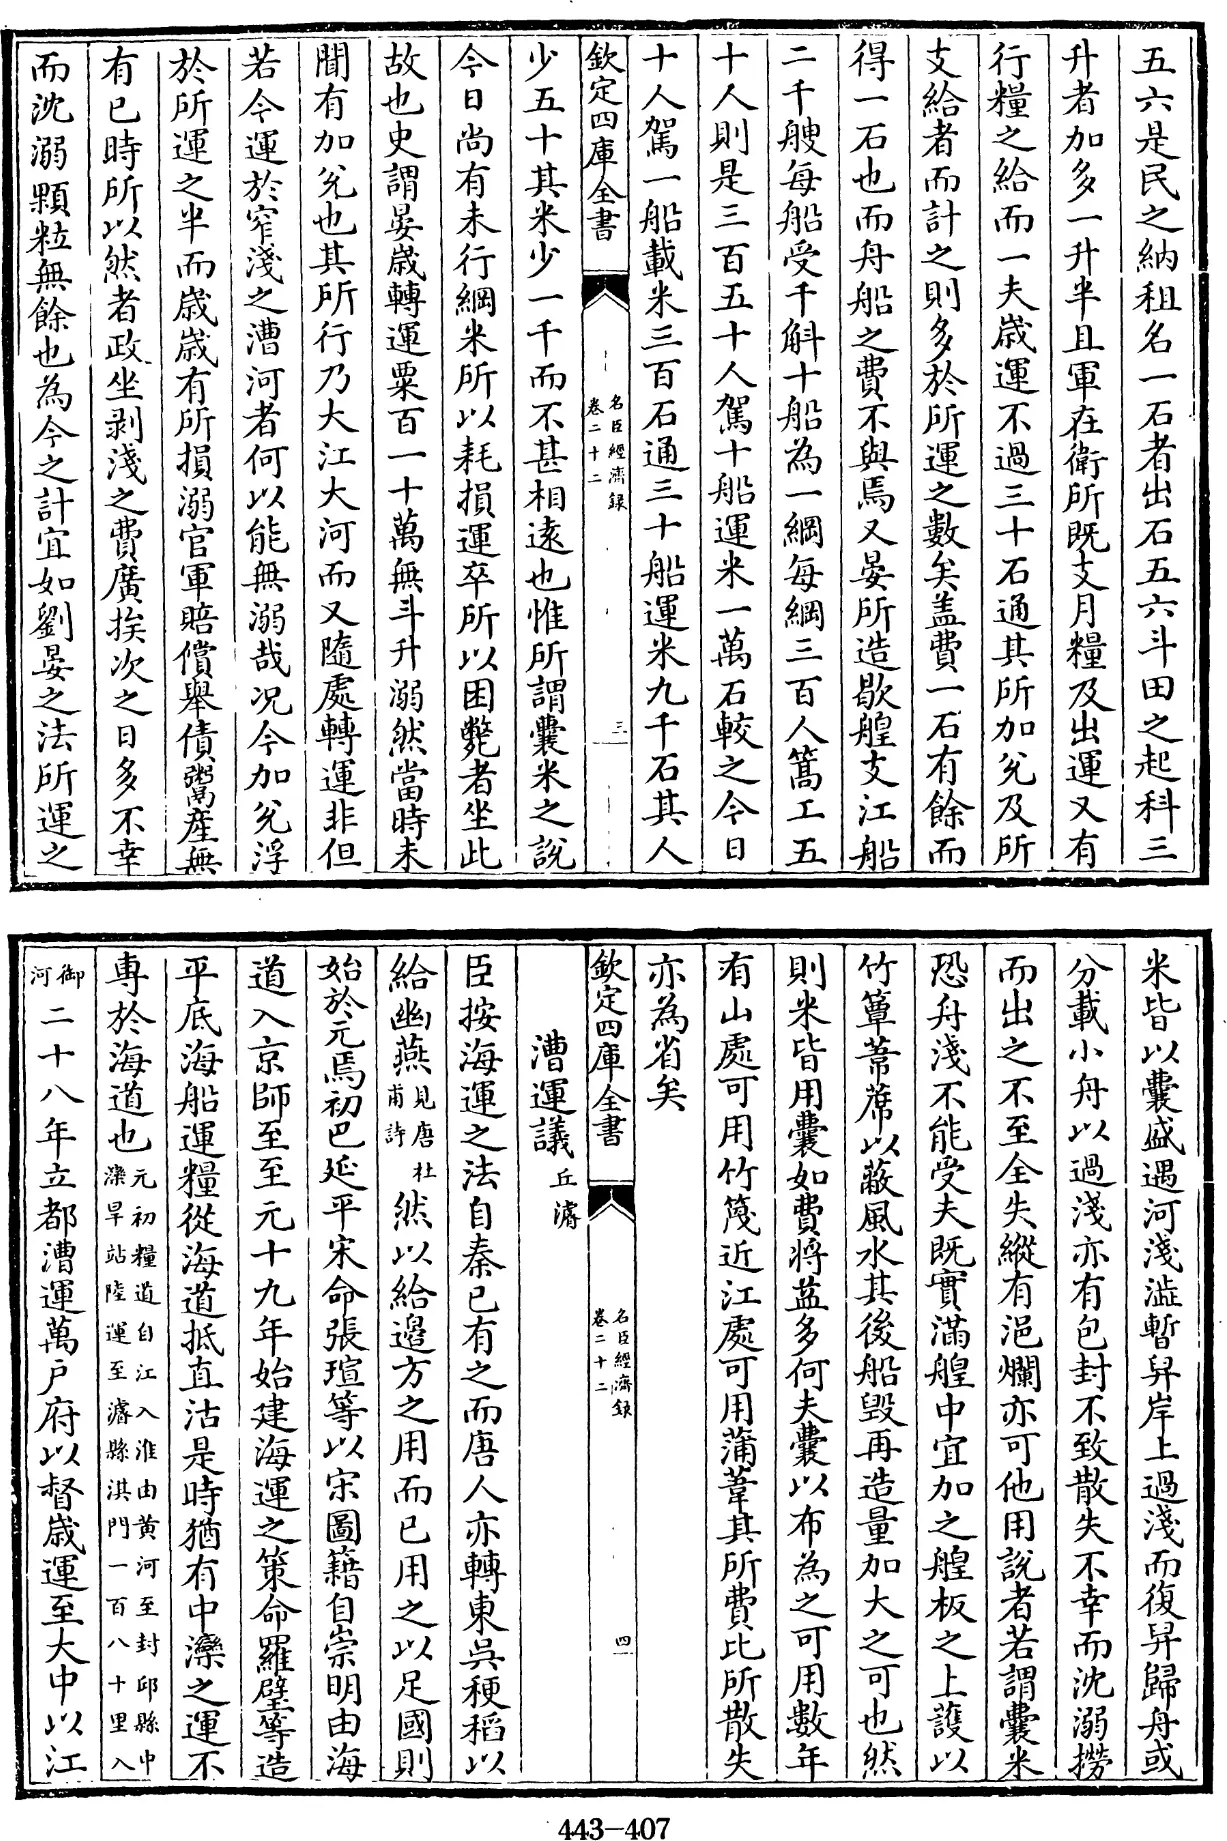 五六是民之納租名一石者出石五六斗田之起科三
升者加多一升半且軍在衛所既支月糧及出運又有
行糧之給而一夫歲運不過三十石通其所加兌及所
支給者而計之則多於所運之數矣盖費一石有餘而
得一石也而舟船之費不與焉又晏所造歇艎支江船
二千艘每船受千斛十船為一綱每綱三百人篙工五
十人則是三百五十人駕十船運米一萬石較之今日
十人駕一船載米三百石通三十船運米九千石其人
欽定四庫全書
名臣經濟録
卷二十二
三
少五十其米少一千而不甚相遠也惟所謂囊米之說
今日尚有未行綱米所以耗損運卒所以困斃者坐此
故也史謂晏歲轉運粟百一十萬無斗升溺然當時未
聞有加兌也其所行乃大江大河而又隨處轉運非但
若今運於窄淺之漕河者何以能無溺哉况今加兌浮
於所運之半而歲歲有所損溺官軍賠償舉債鬻產無
有已時所以然者政坐剥淺之費廣挨次之日多不幸
而沈溺顆粒無餘也為今之計宜如劉晏之法所運之
米皆以囊盛遇河淺澁暫舁岸上過淺而復舁歸舟或
分載小舟以過淺亦有包封不致散失不幸而沈溺撈
而出之不至全失縱有浥爛亦可他用說者若謂囊米
恐舟淺不能受夫既實滿艎中宜加之艎板之上護以
竹簟葦蓆以蔽風水其後船毁再造量加大之可也然
則米皆用囊如費將益多何夫囊以布為之可用數年
有山處可用竹篾近江處可用蒲葦其所費比所散失
亦為省矣
欽定四庫全書
名臣經濟録
卷二十二
四
漕運議 丘濬
臣按海運之法自秦已有之而唐人亦轉東吳稉稻以
給幽燕見唐杜甫詩然以給邉方之用而已用之以足國則
始於元焉初巴延平宋命張瑄等以宋圖籍自崇明由海
道入京師至至元十九年始建海運之策命羅璧等造
平底海船運糧從海道抵直沽是時猶有中灤之運不
專於海道也元初糧道自江入淮由黄河至封邱縣中灤旱站陸運至濬縣淇門一百八十里入
御河二十八年立都漕運萬戶府以督歲運至大中以江
443-407